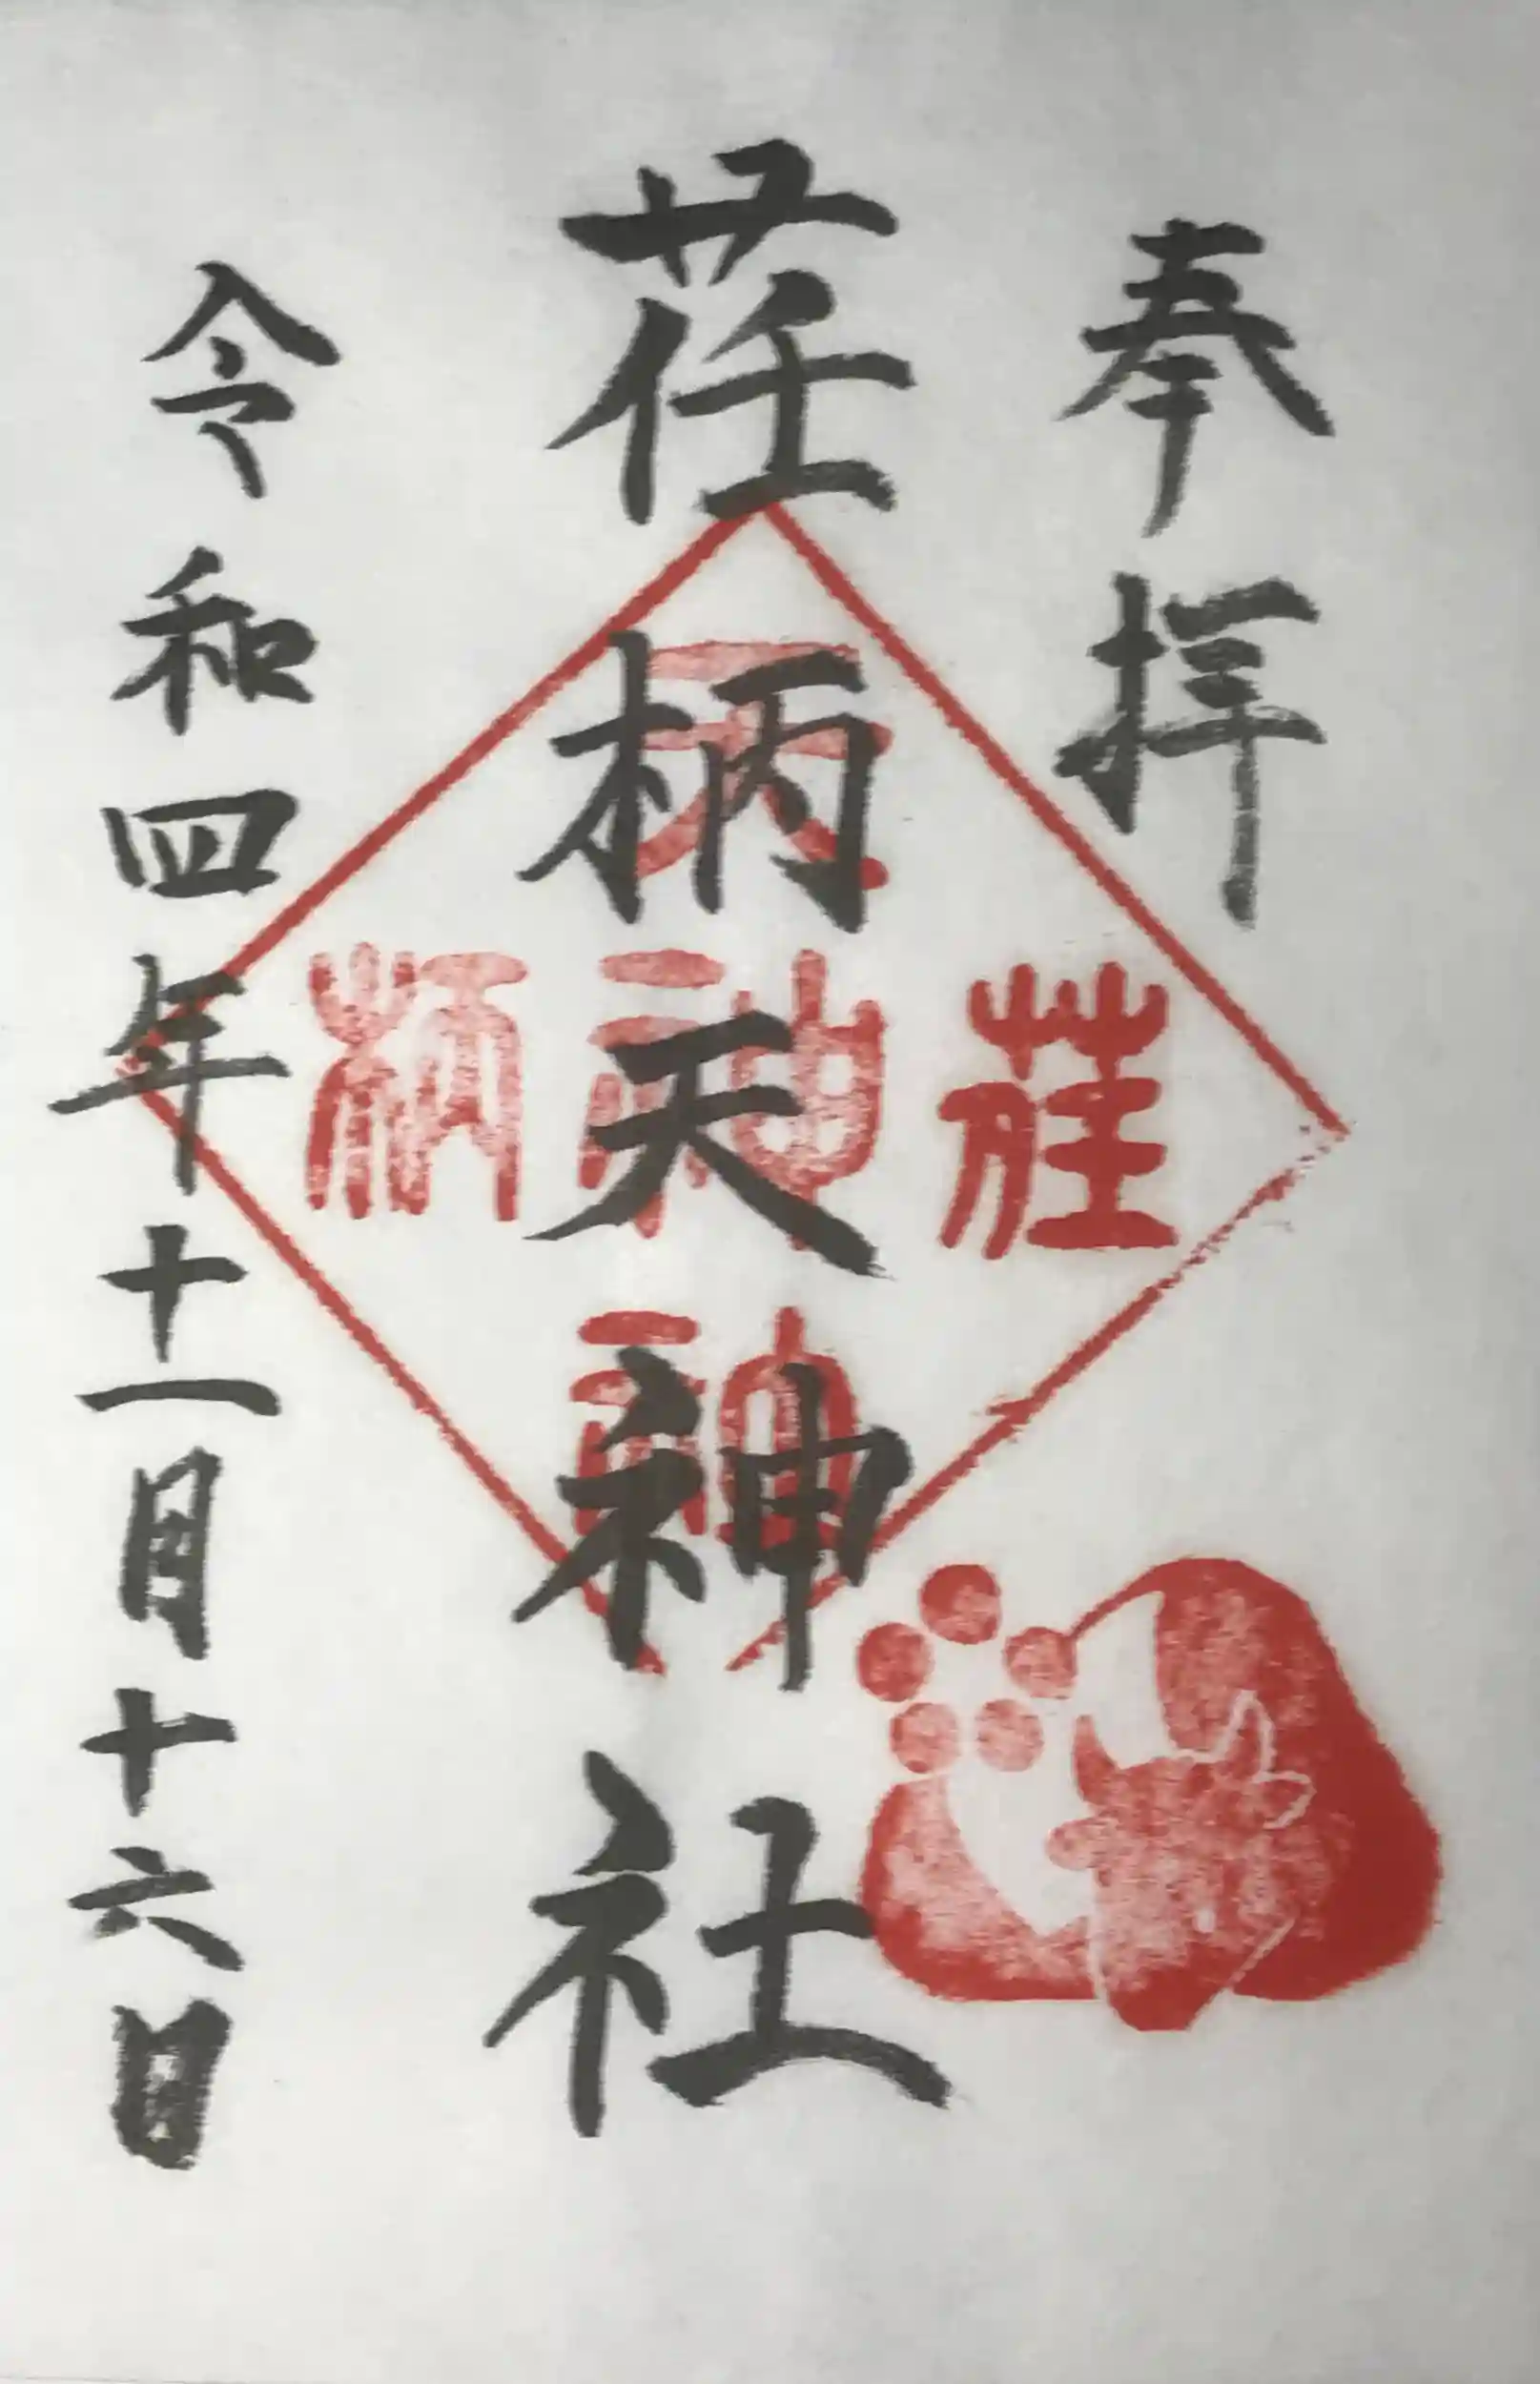 奉拝
荏柄天神社
令和四年十一月十六日
天
荏
神
柄
神